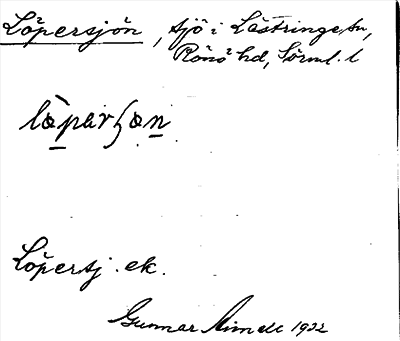 Löpersjön, sjö i Lästringe sn,
Rönö hd, Sörml. l
Löpersj. ek.
Gunnar 1922